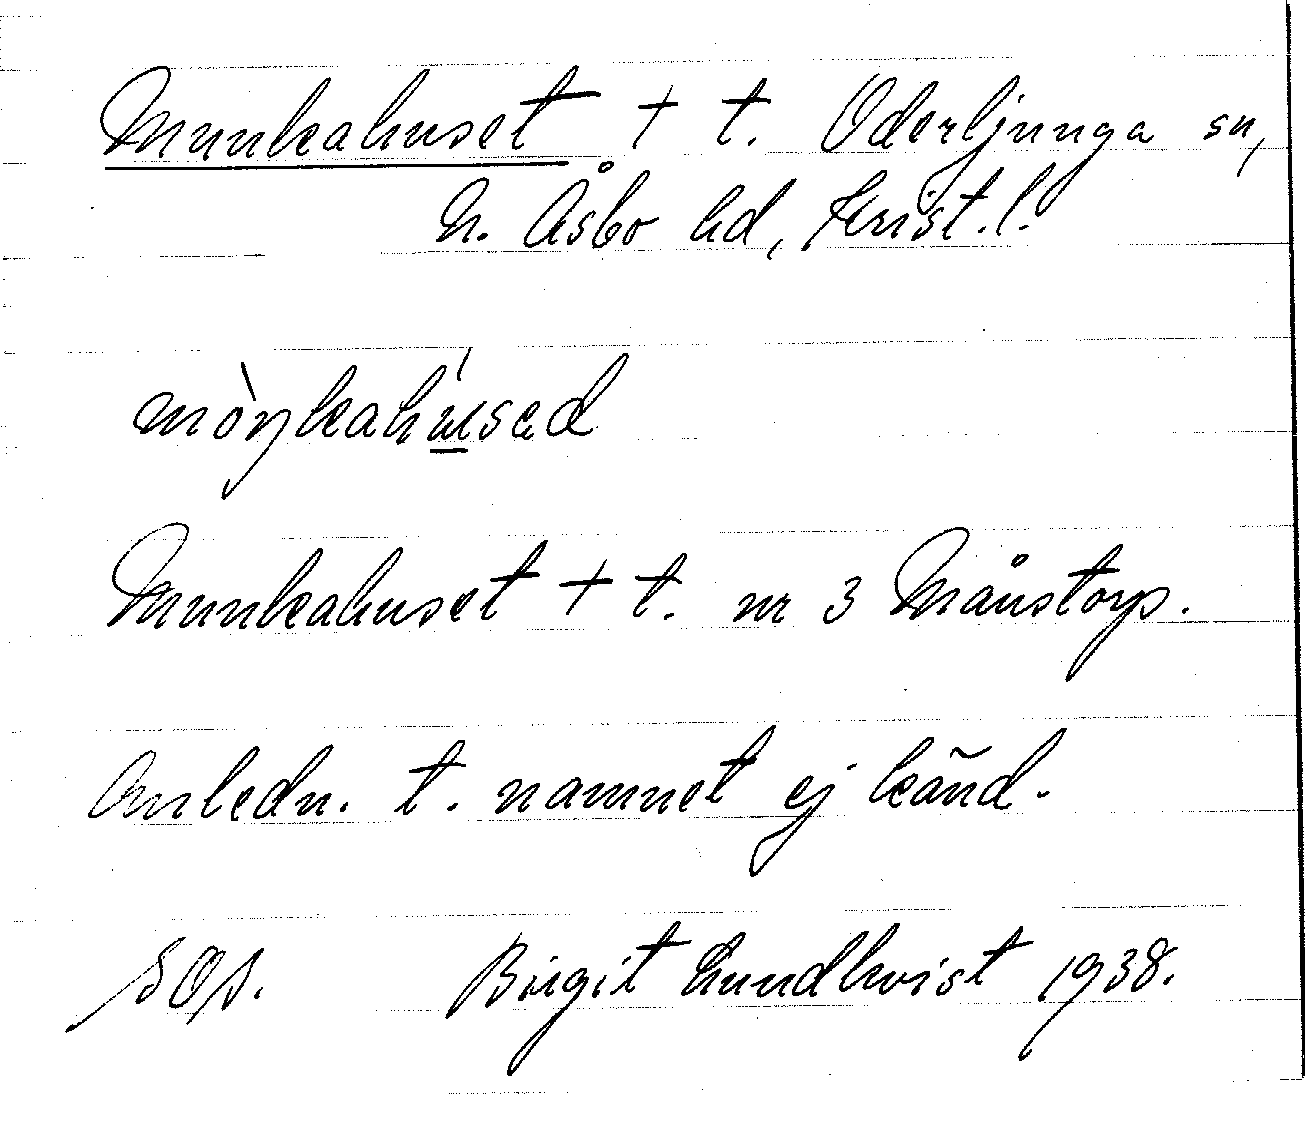 Munkahuset + t. Oderljunga sn,
N. Åsbo hd, Krist. l.
mòŋkahú̲sed
Munkahuset + t. nr 3 Månstorp.
Anledn. t. namnet ej känd.
Birgit Lundkvist 1938.